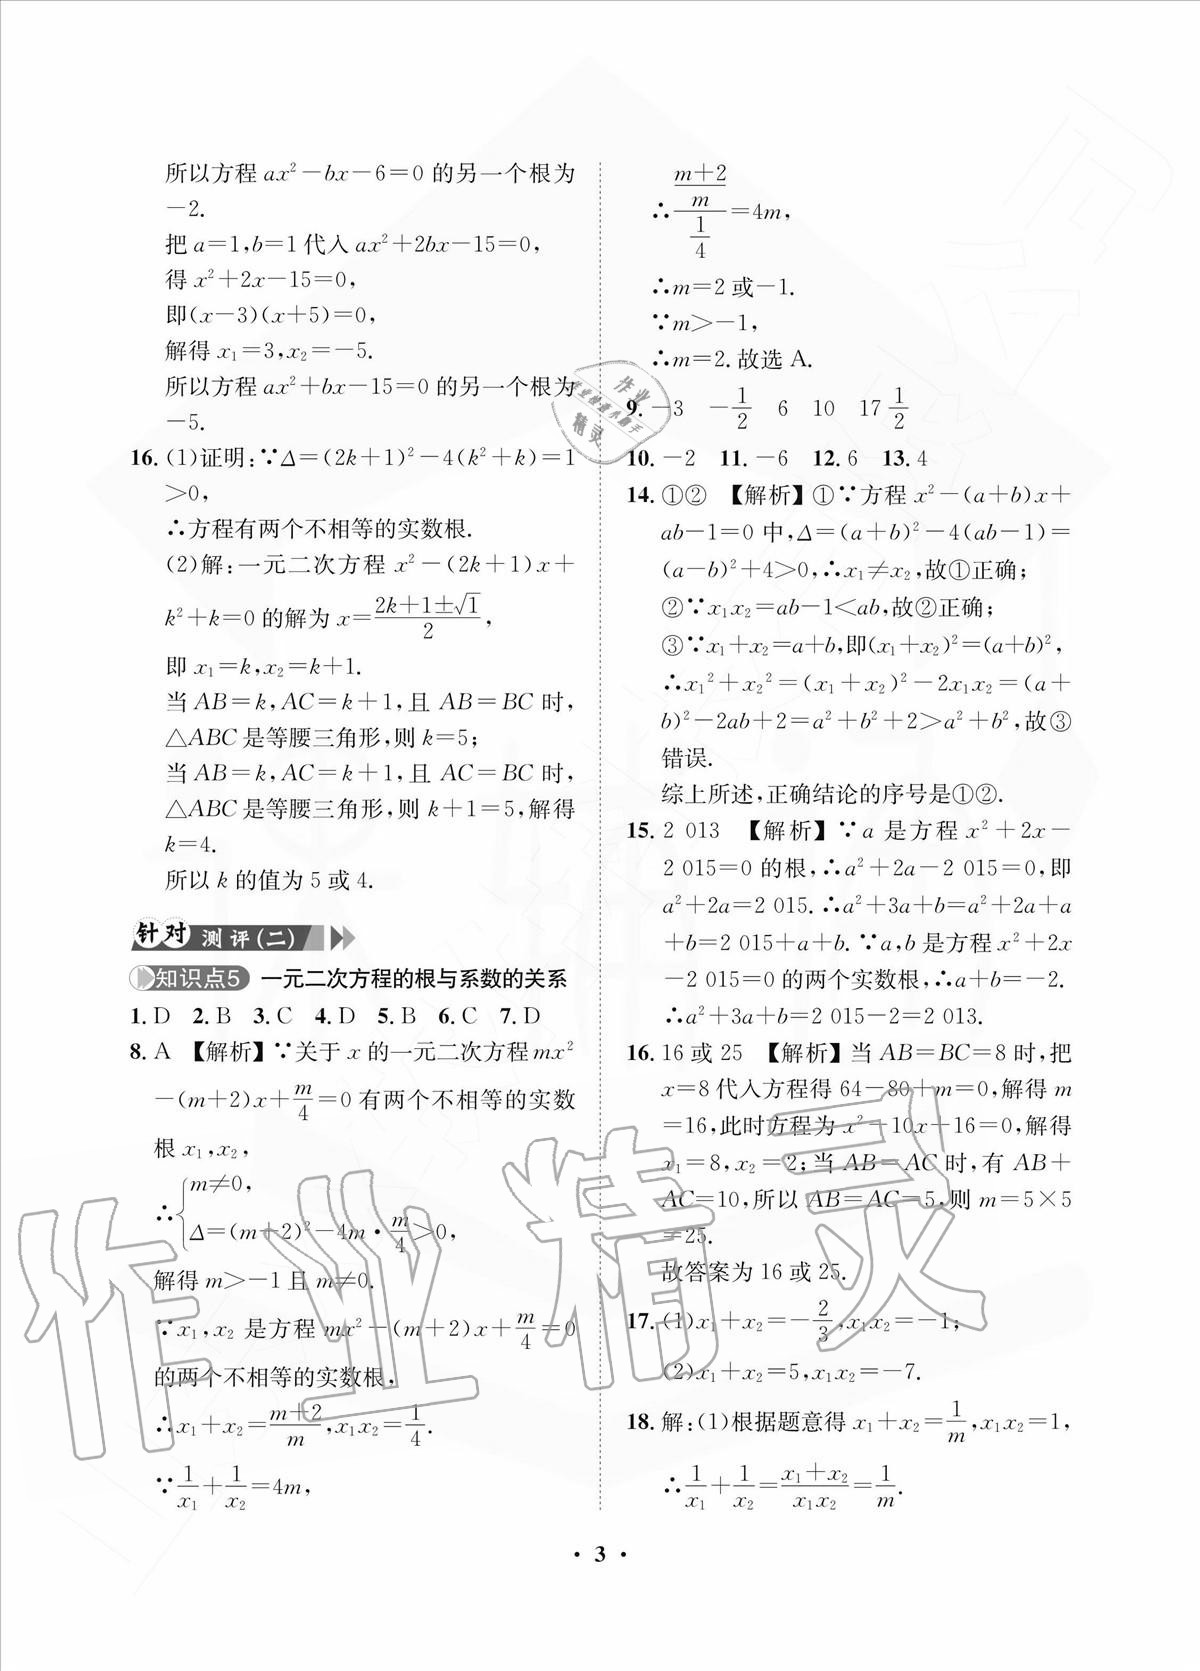 所以方程 ax²－bx－6＝0 的另一个根为
－2.
把 a＝1,b＝1 代入 ax²＋2bx－15＝0,
得 x²＋2x－15＝0,
即(x－3)(x＋5)＝0,
解得 x₁＝3,x₂＝－5.
所以方程 ax²＋bx－15＝0 的另一个根为
－5.
16. (1)证明:∵Δ＝(2k＋1)²－4(k²＋k)＝1
＞0,
∴方程有两个不相等的实数根.
(2)解:一元二次方程 x²－(2k＋1)x＋
k²＋k＝0 的解为 x＝(2k＋1±√1)/2,
即 x₁＝k,x₂＝k＋1.
当 AB＝k,AC＝k＋1,且 AB＝BC 时,
△ABC 是等腰三角形,则 k＝5;
当 AB＝k,AC＝k＋1,且 AC＝BC 时,
△ABC 是等腰三角形,则 k＋1＝5,解得
k＝4.
所以 k 的值为 5 或 4.
针对测评(二)
知识点5 一元二次方程的根与系数的关系
1. D 2. B 3. C 4. D 5. B 6. C 7. D
8. A 【解析】∵关于 x 的一元二次方程 mx²
－(m＋2)x＋m/4＝0 有两个不相等的实数
根 x₁,x₂,
∴{m≠0,
Δ＝(m＋2)²－4m·m/4＞0,
解得 m＞－1 且 m≠0.
∵x₁,x₂ 是方程 mx²－(m＋2)x＋m/4＝0
的两个不相等的实数根,
∴x₁＋x₂＝(m＋2)/m,x₁x₂＝1/4.
∵1/x₁＋1/x₂＝4m,
∴((m＋2)/m)/(1/4)＝4m,
∴m＝2 或－1.
∵m＞－1,
∴m＝2. 故选 A.
9. －3 －1/2 6 10 17 1/2
10. －2 11. －6 12. 6 13. 4
14. ①② 【解析】①∵方程 x²－(a＋b)x＋
ab－1＝0 中,Δ＝(a＋b)²－4(ab－1)＝
(a－b)²＋4＞0,∴x₁≠x₂,故①正确;
②∵x₁x₂＝ab－1＜ab,故②正确;
③∵x₁＋x₂＝a＋b,即(x₁＋x₂)²＝(a＋b)²,
∴x₁²＋x₂²＝(x₁＋x₂)²－2x₁x₂＝(a＋
b)²－2ab＋2＝a²＋b²＋2＞a²＋b²,故③
错误.
综上所述,正确结论的序号是①②.
15. 2 013 【解析】∵a 是方程 x²＋2x－
2 015＝0 的根,∴a²＋2a－2 015＝0,即
a²＋2a＝2 015. ∴a²＋3a＋b＝a²＋2a＋a
＋b＝2 015＋a＋b. ∵a,b 是方程 x²＋2x
－2 015＝0 的两个实数根,∴a＋b＝－2.
∴a²＋3a＋b＝2 015－2＝2 013.
16. 16 或 25 【解析】当 AB＝BC＝8 时,把
x＝8 代入方程得 64－80＋m＝0,解得 m
＝16,此时方程为 x²－10x＋16＝0,解得
x₁＝8,x₂＝2;当 AB＝AC 时,有 AB＋
AC＝10,所以 AB＝AC＝5,则 m＝5×5
＝25.
故答案为 16 或 25.
17. (1)x₁＋x₂＝－2/3,x₁x₂＝－1;
(2)x₁＋x₂＝5,x₁x₂＝－7.
18. 解:(1)根据题意得 x₁＋x₂＝1/m,x₁x₂＝1,
∴1/x₁＋1/x₂＝(x₁＋x₂)/(x₁x₂)＝1/m.
· 3 ·
作业精灵
作业
精灵